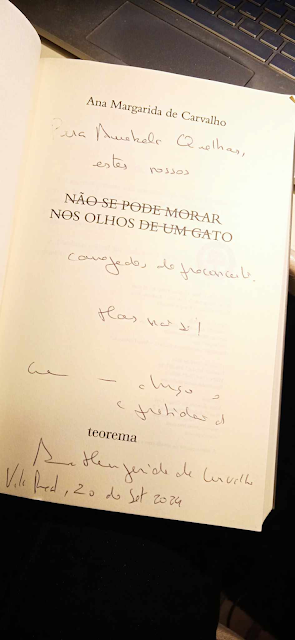 Ana Margarida de Carvalho
Para Anabela Quelhas,
estes nossos
NÃO SE PODE MORAR
NOS OLHOS DE UM GATO
Mas não só!
teorema
Ana Margarida de Carvalho
Vila Real, 20 de Set 2024